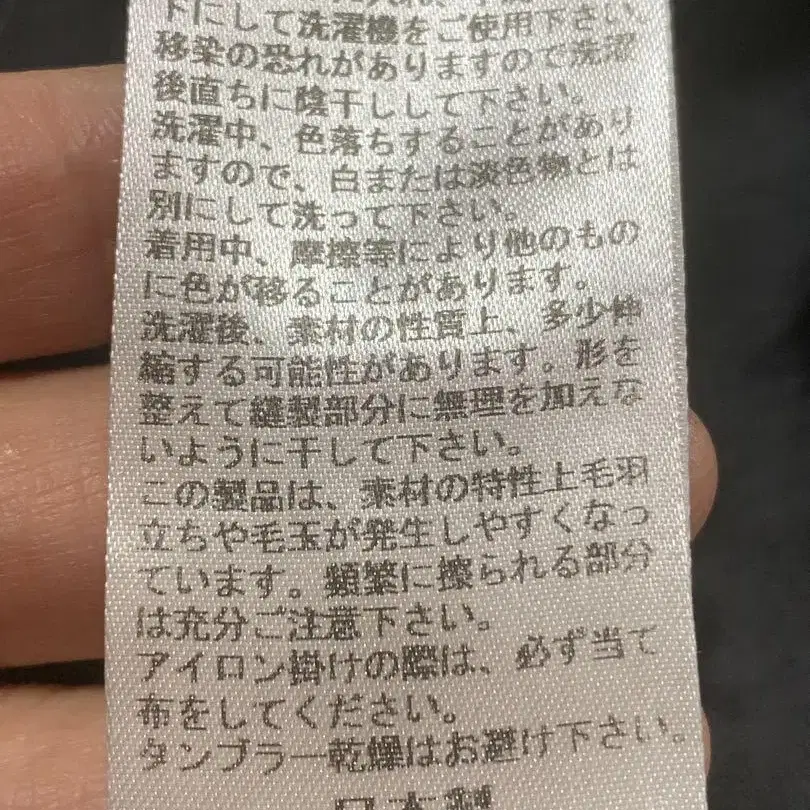 トにして洗濯機をご使用下さい。
移染の恐れがありますので洗濯
後直ちに陰干しして下さい。
洗濯中、色落ちすることがあり
ますので、白または淡色物とは
別にして洗って下さい。
着用中、摩擦等により他のもの
に色が移ることがあります。
洗濯後、素材の性質上、多少伸
縮する可能性があります。形を
整えて縫製部分に無理を加えな
いように干して下さい。
この製品は、素材の特性上毛羽
立ちや毛玉が発生しやすくなっ
ています。頻繁に擦られる部分
は充分ご注意下さい。
アイロン掛けの際は、必ず当て
布をしてください。
タンブラー乾燥はお避け下さい。
日本製